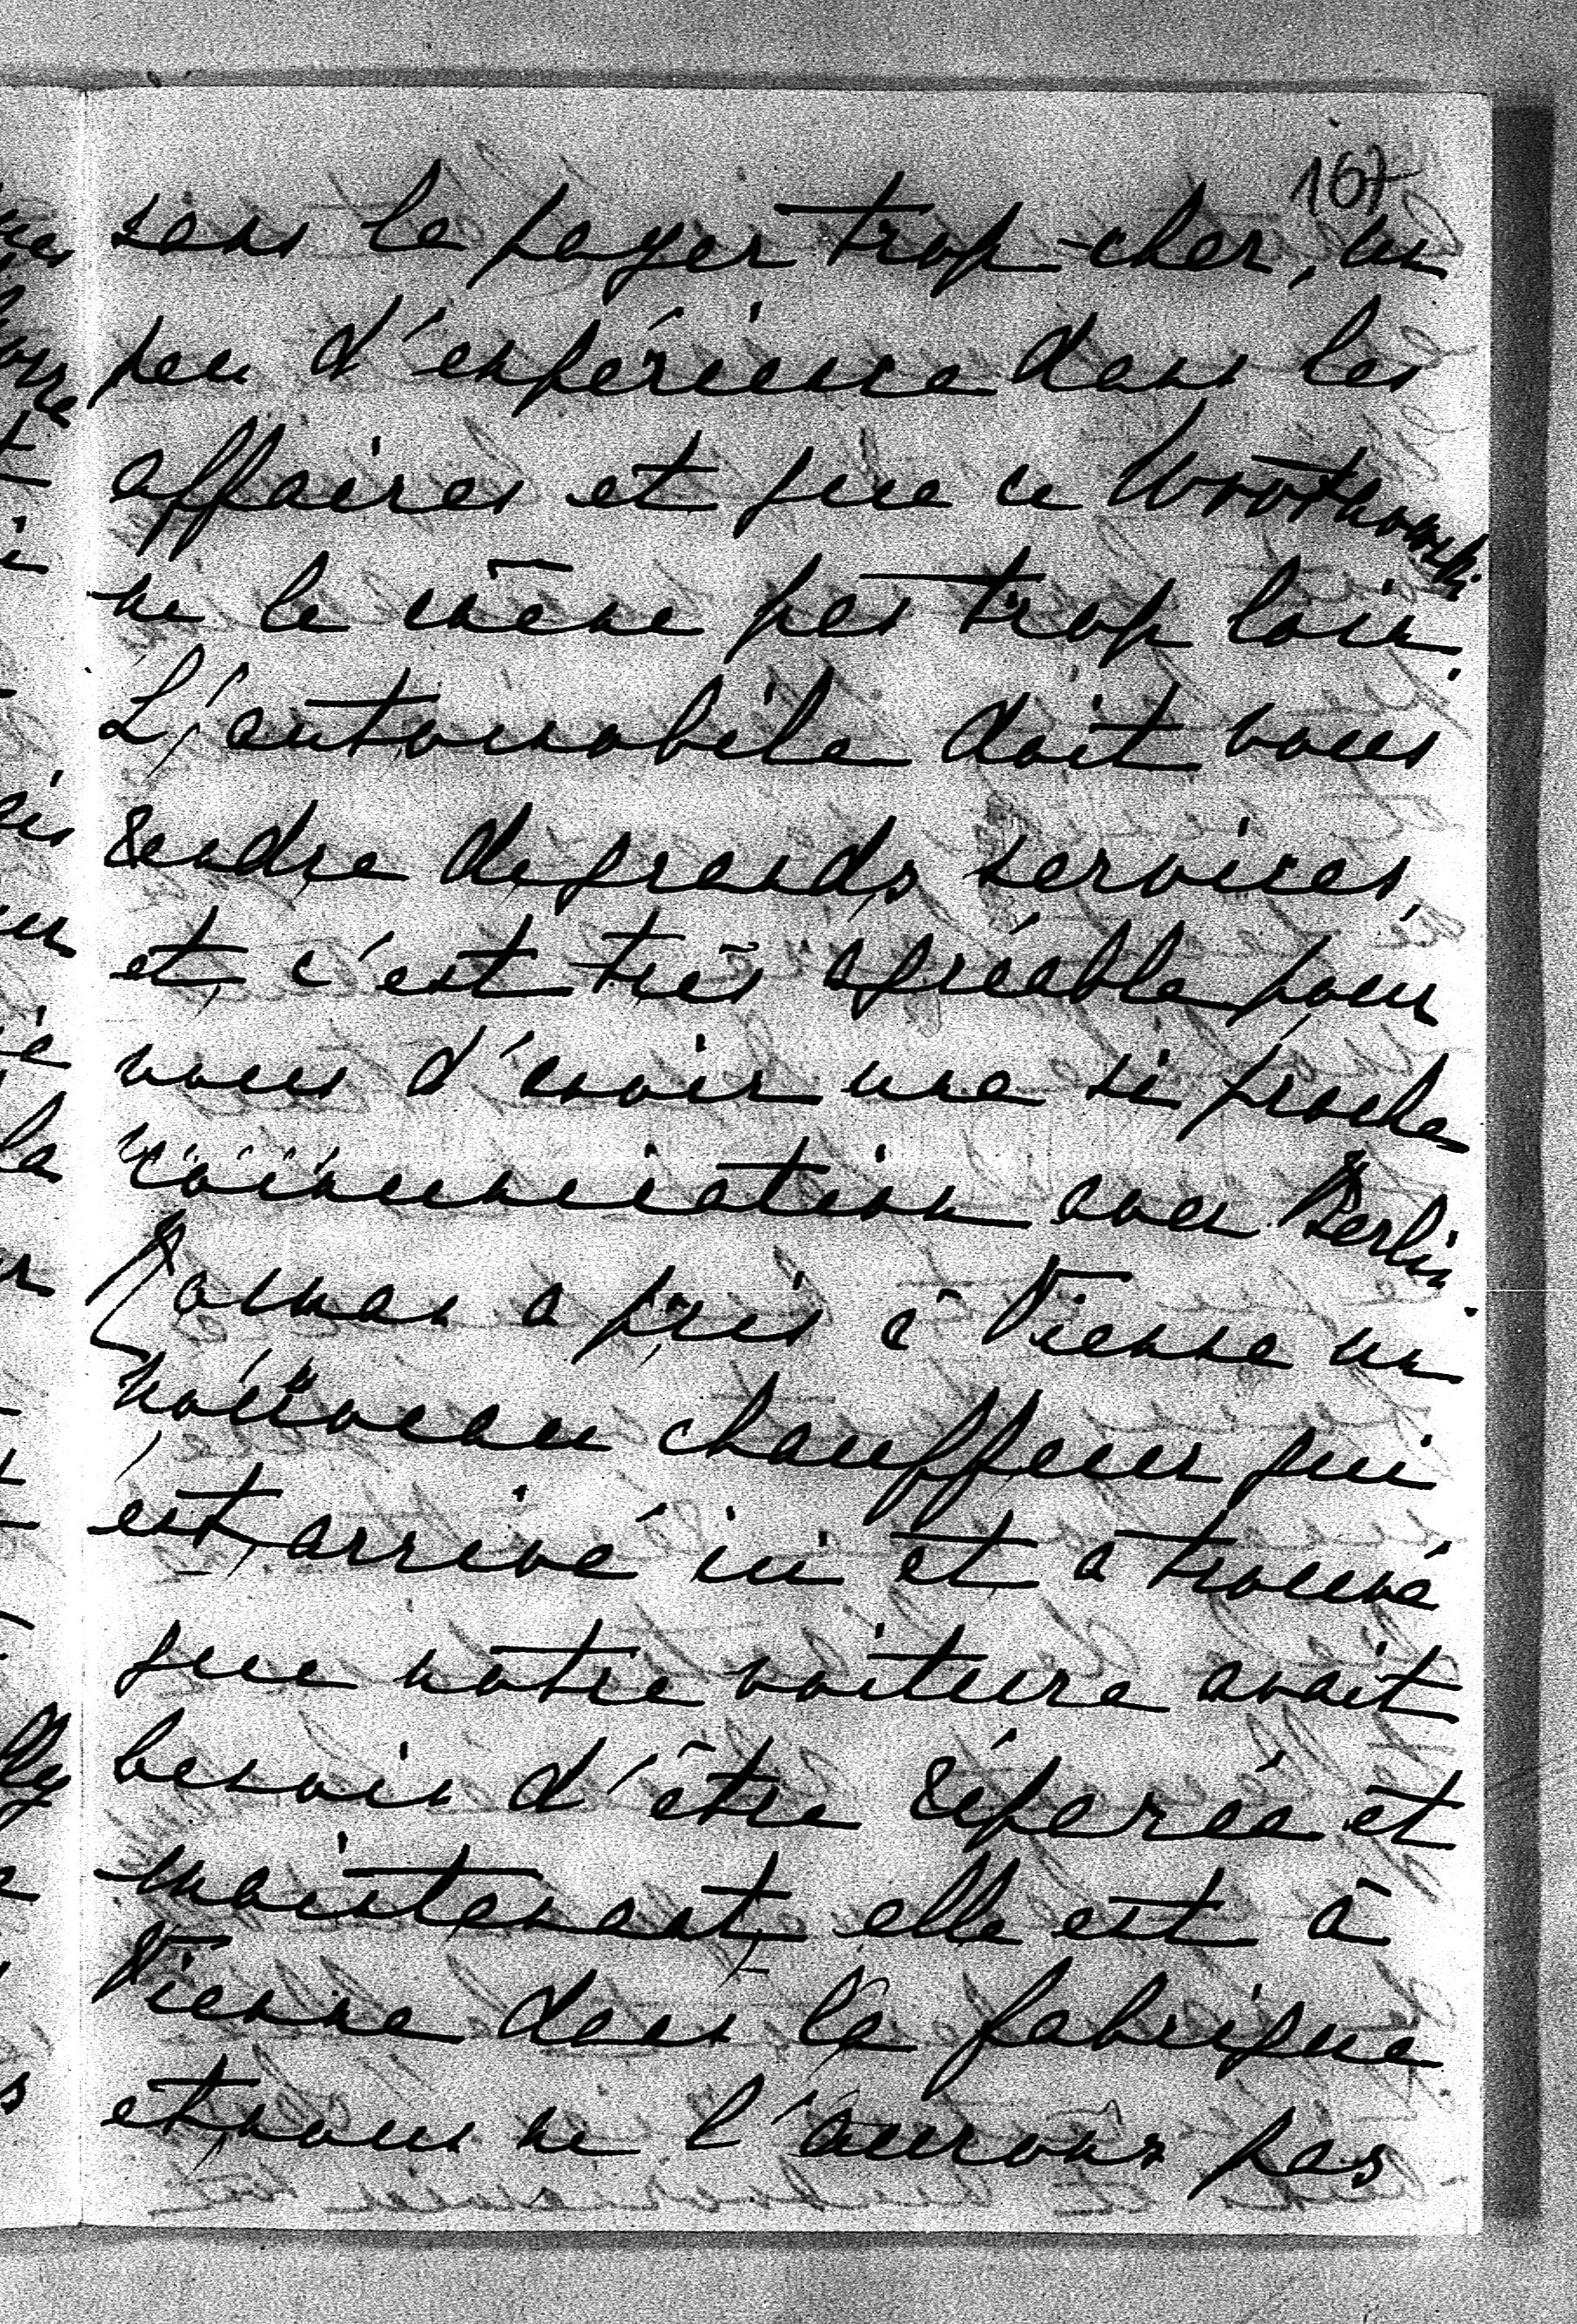 167
sans la payer trop cher, un
peu d'expérience dans les
affaires et que ce
ne le mène pas trop loin.
L'automobile doit vous
rendre de grands services,
et c'est très agréable pour
vous d'avoir une si proche
communication avec Berlin.
Roman a pris à Vienne un
nouveau chauffeur qui
est arrivé ici et a trouvé
que notre voiture avait
besoin d'être réparée et
maintenant elle est à
Vienne dans la fabrique
et nous ne l'aurons pas